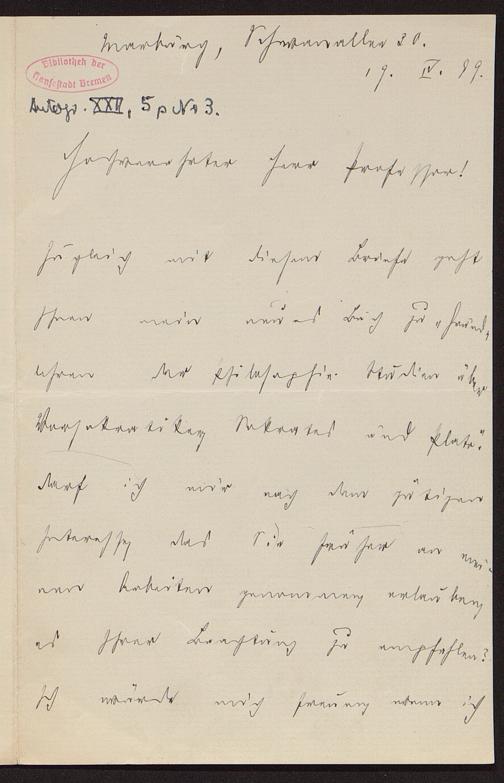 Marburg, Schwanallee 30.
19. IV. 99.
Bibliothek der
Hansestadt Bremen
Autogr. XXII, 5 p No 3.
Hochverehrter Herr Professor!
Zugleich mit diesem Briefe geht
Ihnen mein neues Buch zu „Grund-
lehren der Philosophie. Studien über
Vorsokratiker, Sokrates und Plato“.
Darf ich mir nach dem gütigen
Interesse, das Sie früher an mei-
nen Arbeiten genommen, erlauben,
es Ihrer Beachtung zu empfehlen?
Ich würde mich freuen, wenn ich